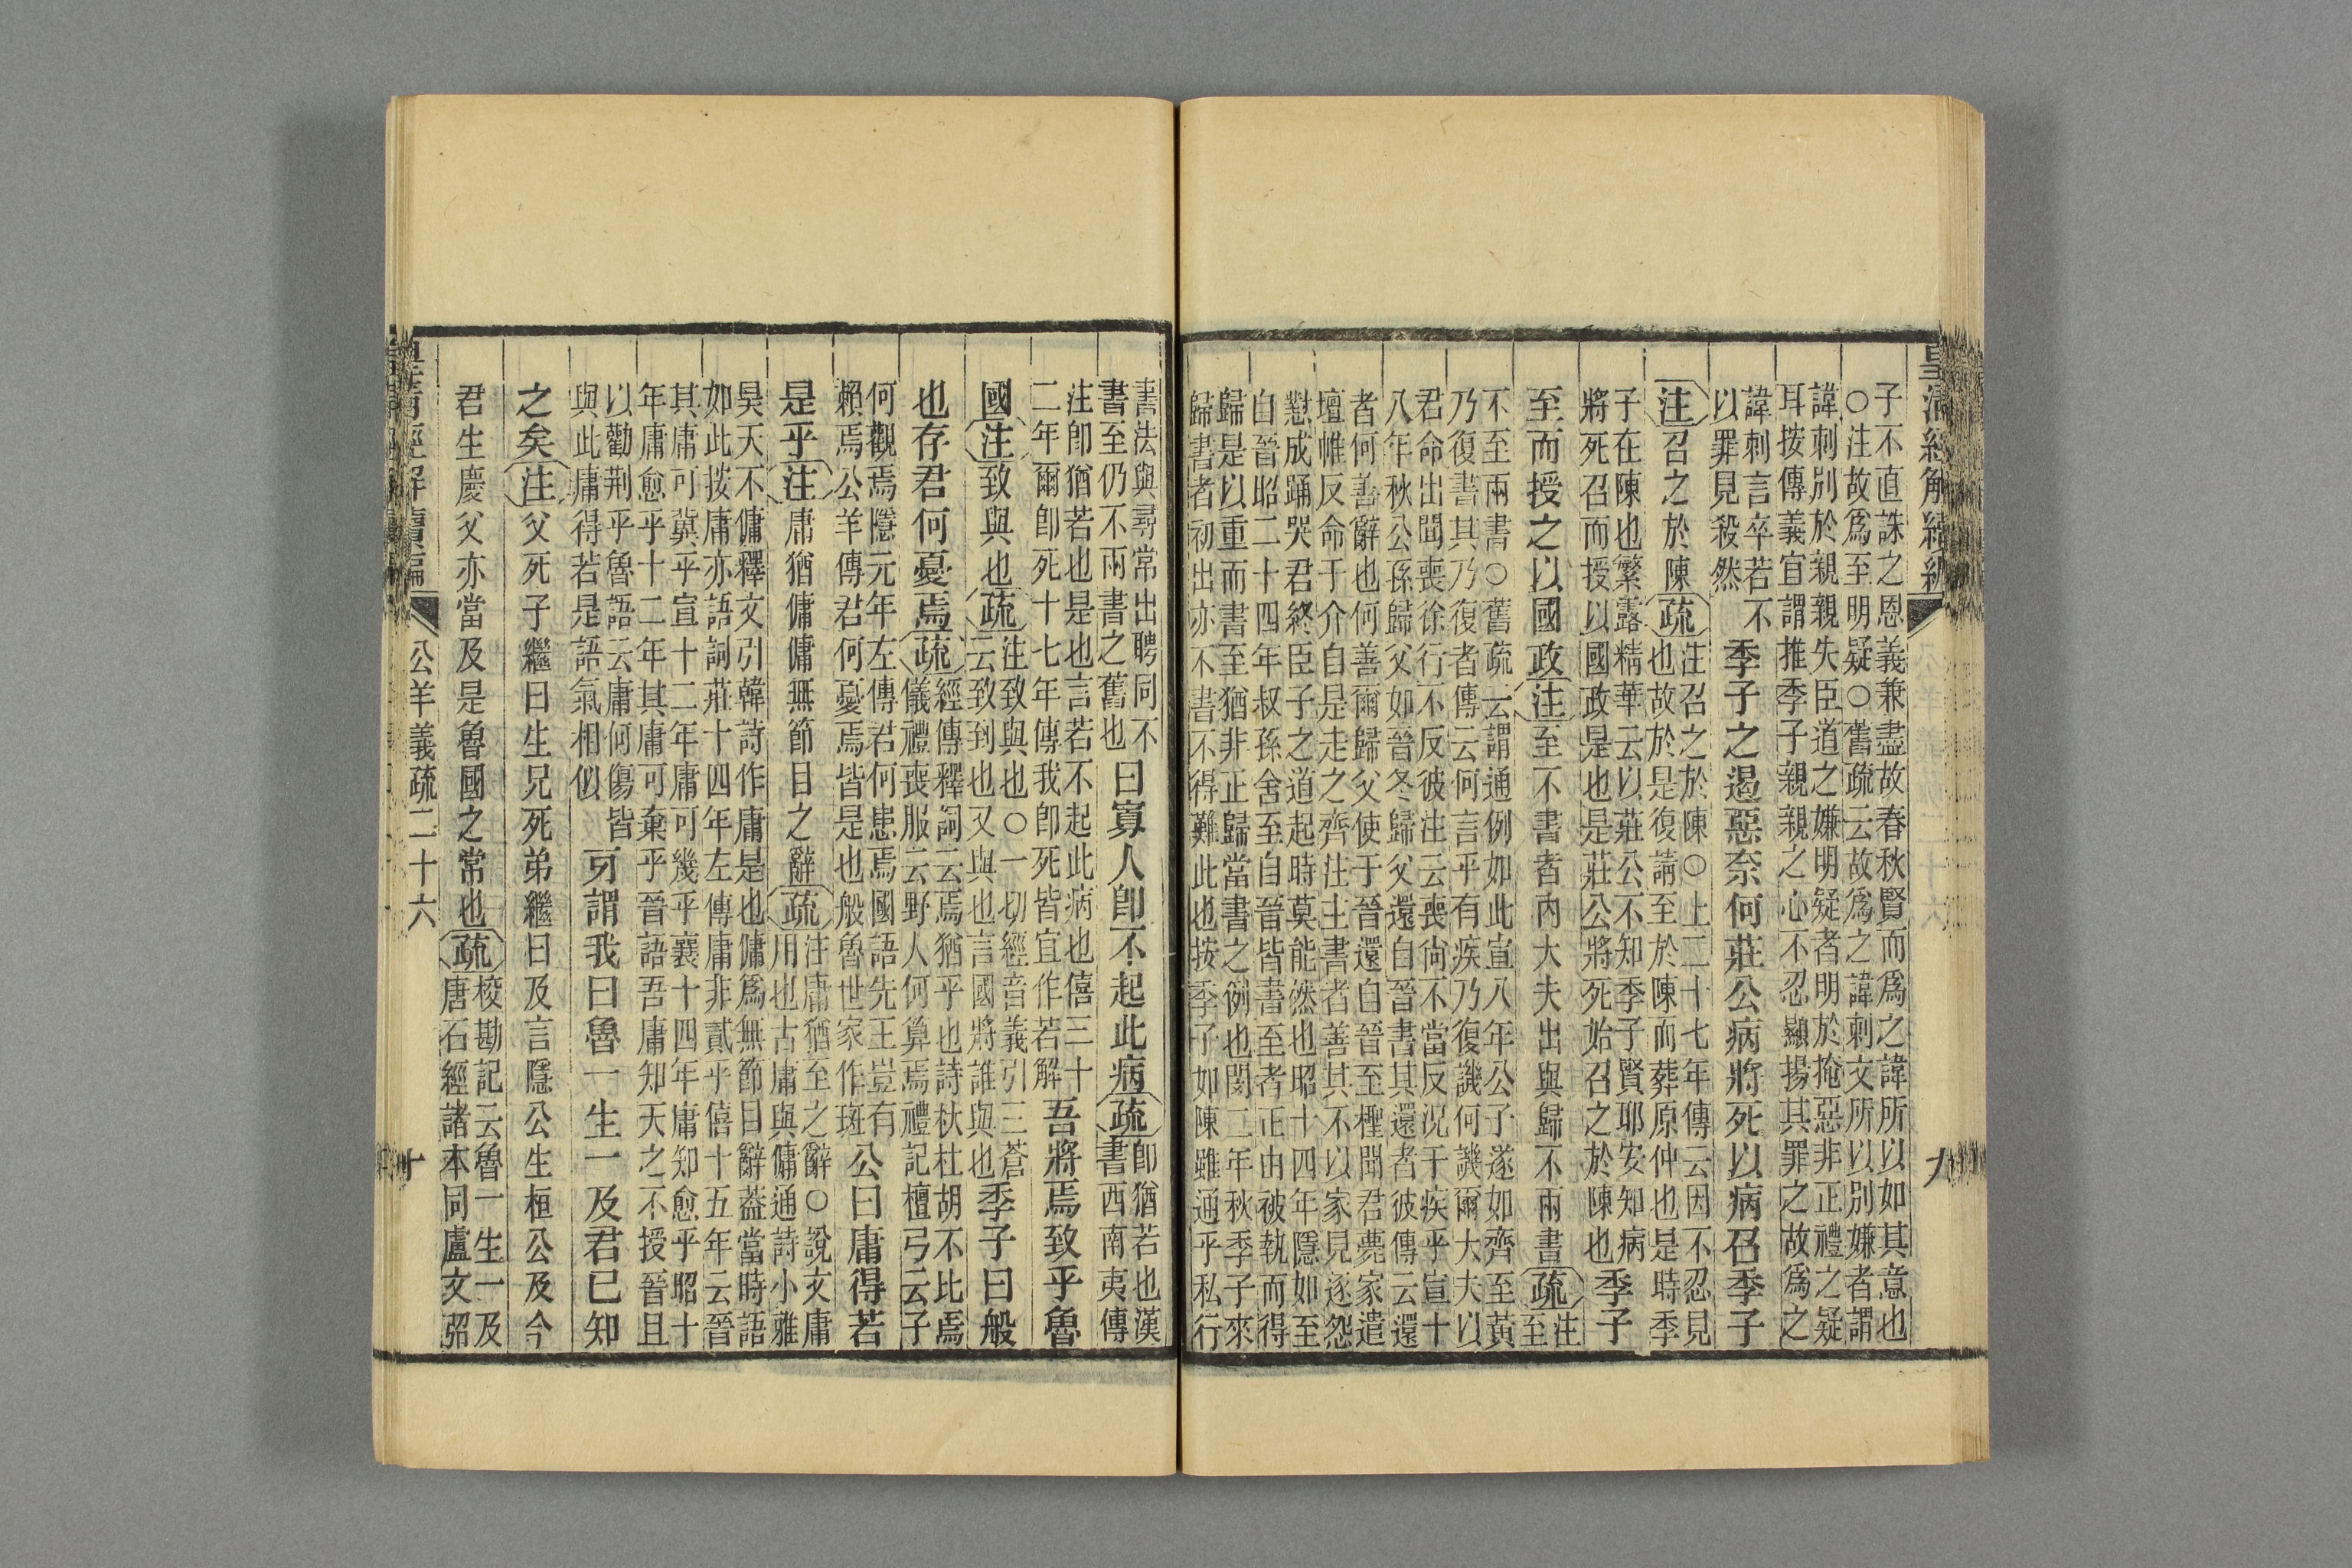 皇清經解續編
九
子不直誅之恩義兼盡故春秋賢而爲之諱所以如其意也
○注故爲至明疑○舊疏云故爲之諱刺文所以別嫌者謂
諱刺別於親親失臣道之嫌明疑者明於掩惡非正禮之疑
耳按傳義宜謂推季子親親之心不忍顯揚其罪之故爲之
諱刺言卒若不
以罪見殺然
季子之遏惡奈何莊公病將死以病召季子
注召之於陳疏注召之於陳○上二十七年傳云因不忍見
也故於是復請至於陳而葬原仲也是時季
子在陳也繁露精華云以莊公不知季子賢耶安知病
將死召而授以國政是也是莊公將死始召之於陳也
季子
至而授之以國政注至不書者內大夫出與歸不兩書疏注
至
不至兩書○舊疏云謂通例如此宣八年公子遂如齊至黃
乃復書其乃復者傳云何言乎有疾乃復譏何譏爾大夫以
君命出聞喪徐行不反彼注云喪尙不當反況于疾乎宣十
八年秋公孫歸父如晉冬歸父還自晉書其還者彼傳云還
者何善辭也何善爾歸父使于晉還自晉至檉聞君薨家遣
墠帷反命于介自是走之齊注主書者善其不以家見逐怨
懟成踊哭君終臣子之道起時莫能然也昭十四年隱如至
自晉昭二十四年叔孫舍至自晉皆書至者正由被執而得
歸是以重而書至猶非正歸當書之例也閔二年秋季子來
歸書者初出亦不書不得難此也按季子如陳雖通乎私行
書法與尋常出聘同不
書至仍不兩書之舊也
曰寡人卽不起此病疏卽猶若也漢
書西南夷傳
注卽猶若也是也言若不起此病也僖三十
二年爾卽死十七年傳我卽死皆宜作若解
吾將焉致乎魯
國注致與也疏注致與也○一切經音義引三蒼
云致到也又與也言國將誰與也
季子曰般
也存君何憂焉疏經傳釋詞云焉猶乎也詩杕杜胡不比焉
儀禮喪服云野人何算焉禮記檀弓云子
何觀焉隱元年左傳君何患焉國語先王豈有
賴焉公羊傳君何憂焉皆是也般魯世家作斑
公曰庸得若
是乎注庸猶傭傭無節目之辭疏注庸猶至之辭○說文庸
用也古庸與傭通詩小雅
昊天不傭釋文引韓詩作庸是也傭爲無節目辭葢當時語
如此按庸亦語詞莊十四年左傳庸非貳乎僖十五年云晉
其庸可冀乎宣十二年庸可幾乎襄十四年庸知愈乎昭十
年庸愈乎十二年其庸可棄乎晉語吾庸知天之不授晉且
以勸荆乎魯語云庸何傷皆
與此庸得若是語氣相似
牙謂我曰魯一生一及君已知
之矣注父死子繼曰生兄死弟繼曰及言隱公生桓公及今
君生慶父亦當及是魯國之常也疏校勘記云魯一生一及
唐石經諸本同盧文弨
公羊義疏二十六
十